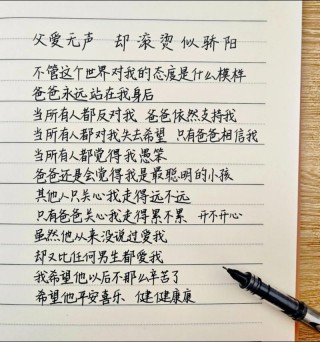 父爱无声 却滚烫似骄阳
不管这个世界对我的态度是什么模样
爸爸永远站在我身后
当所有人都反对我 爸爸依然支持我
当所有人都对我失去希望 只有爸爸相信我
当所有人都觉得我愚笨
爸爸还是会觉得我是最聪明的小孩
其他人只关心我走得远不远
只有爸爸关心我走得累不累 开不开心
虽然他从来没说过爱我
却又比任何男生都爱我
我希望他以后不那么辛苦了
希望他平安喜乐 健健康康